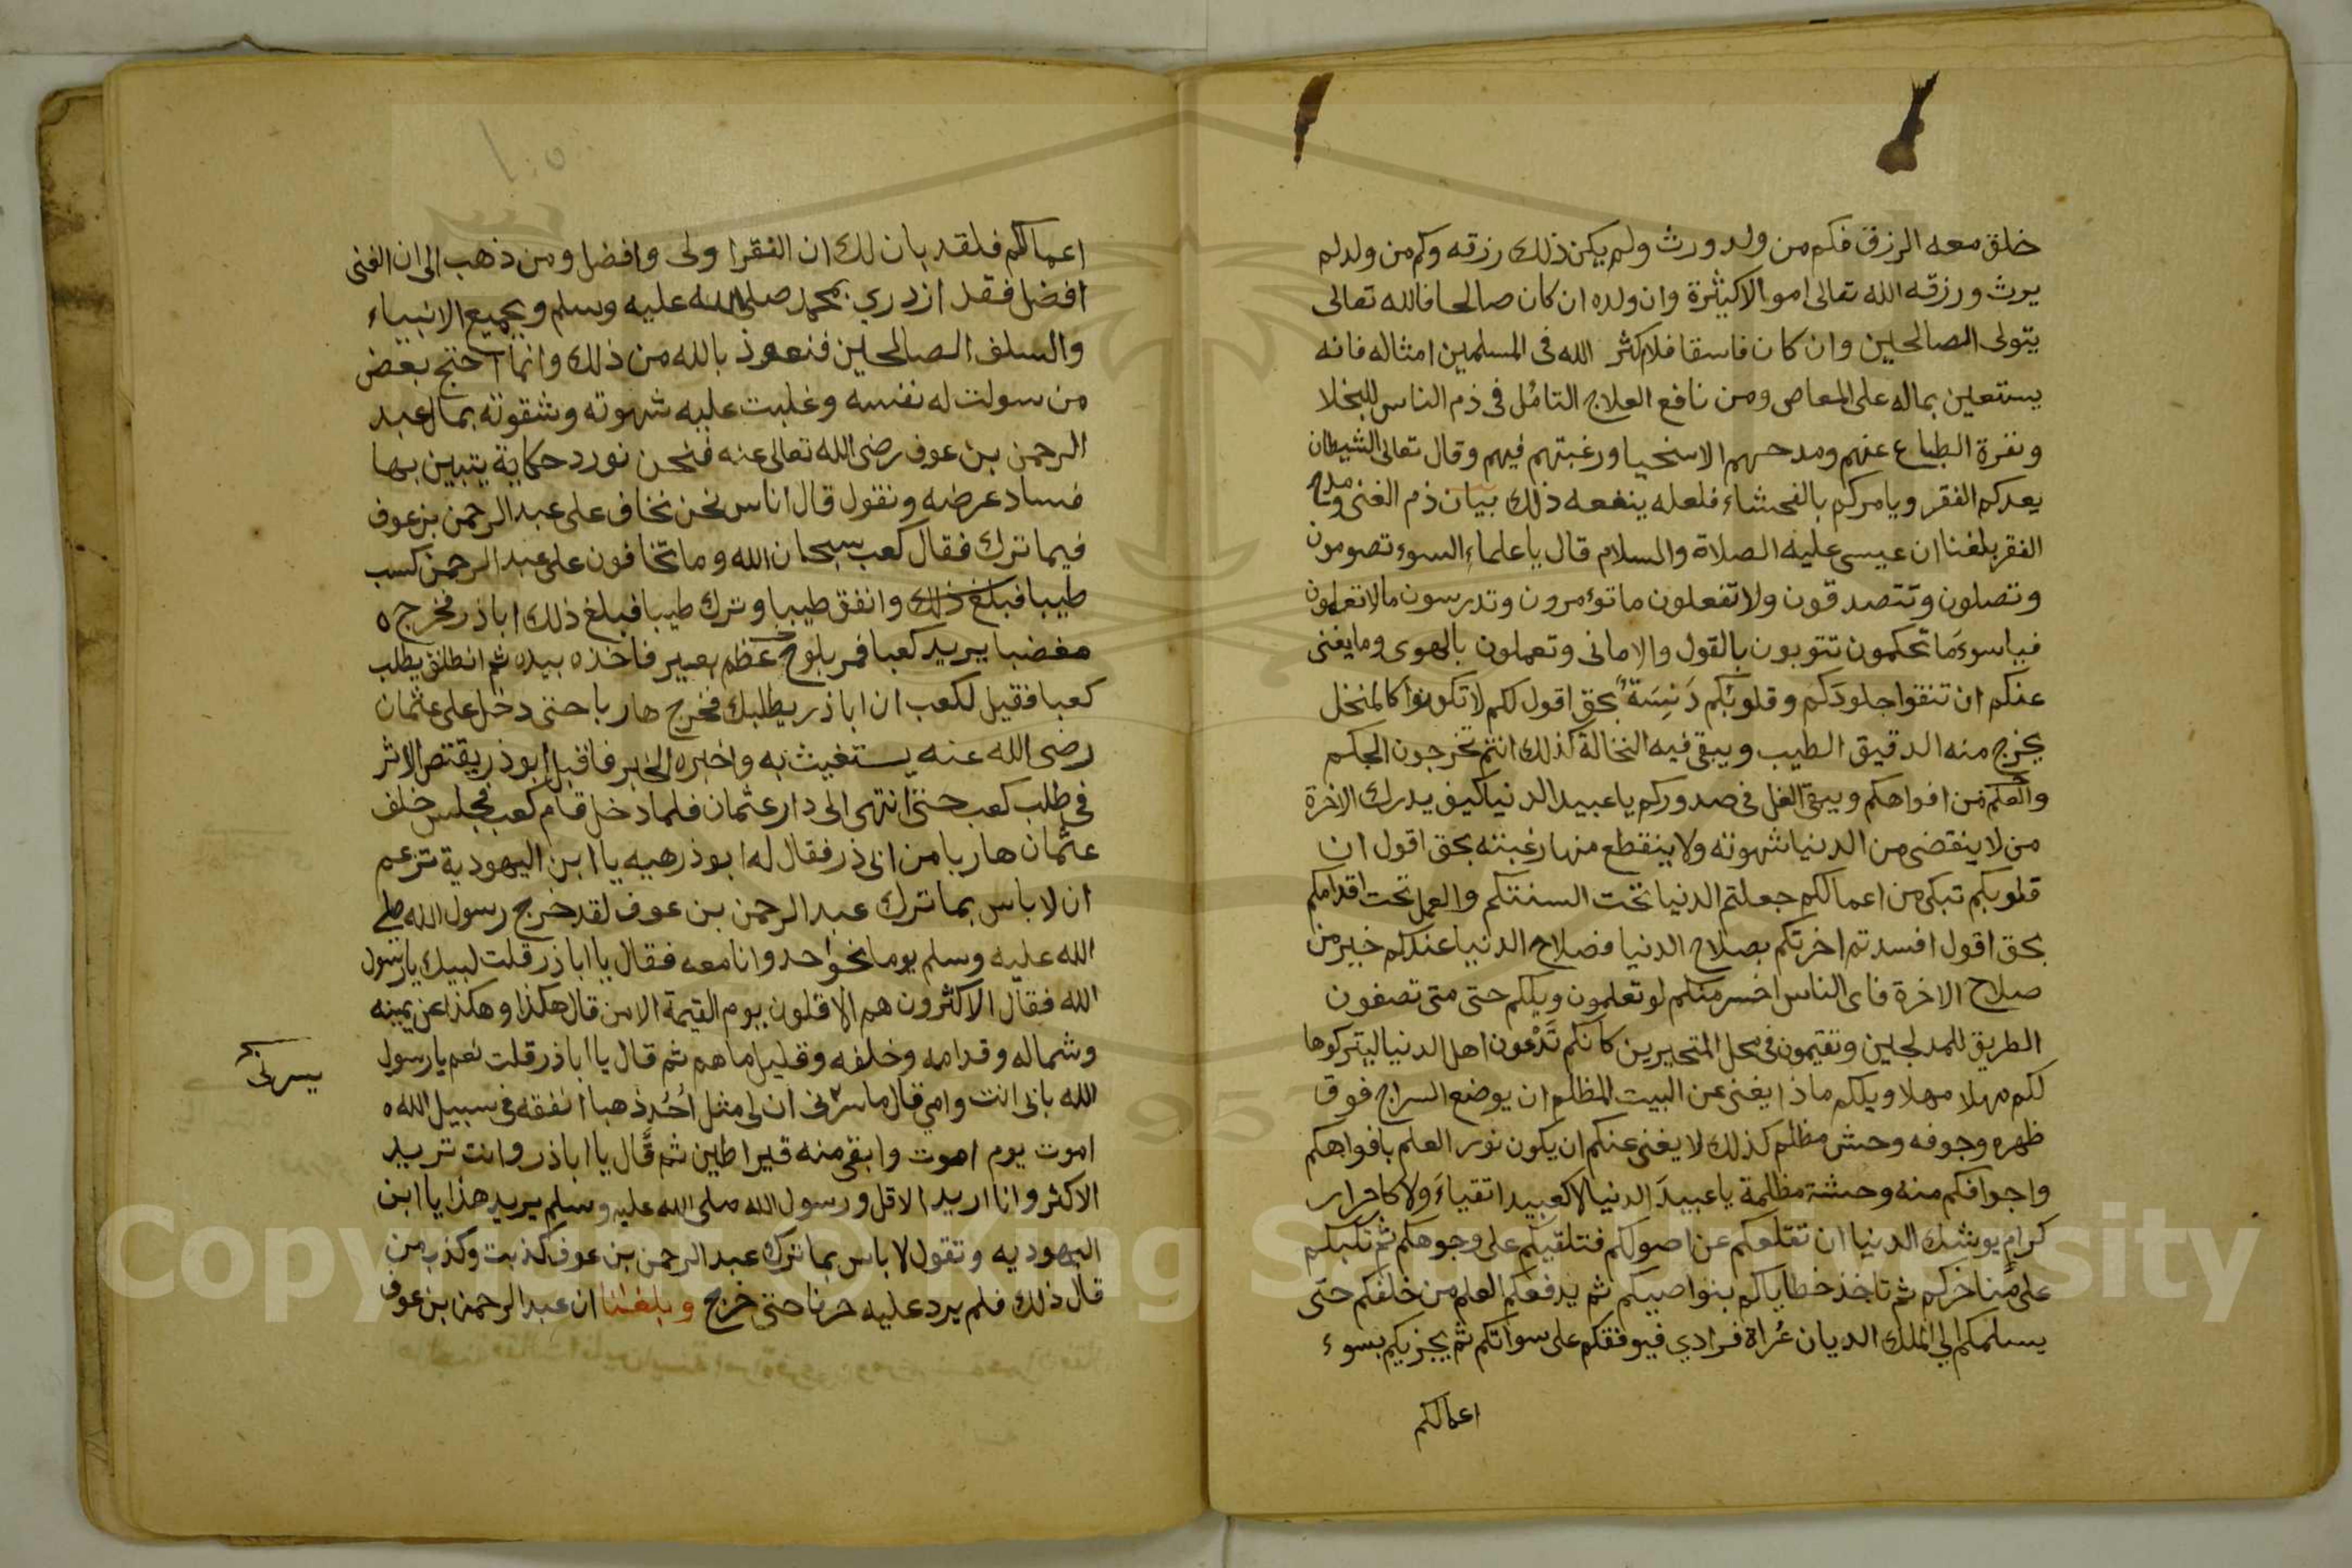 خلق معه الرزق فكم من ولد ورث ولم يكن ذلك رزقه وكم من ولد لم
يرث ورزقه الله تعالى اموالا كثيرة وان ولده ان كان صالحا فالله تعالى
يتولى الصالحين وان كان فاسقا فلا كثر الله فى المسلمين امثاله فانه
يستعين بماله على المعاصى ومن نافع العلاج التامل فى ذم الناس للبخلا
ونفرة الطباع عنهم ومدحهم الاسخيا ورغبتهم فيهم وقال تعالى الشيطان
يعدكم الفقر ويامركم بالفحشاء فلعله ينفعه ذلك بيان ذم الغنى ومدح
الفقر بلغنا ان عيسى عليه الصلاة والسلام قال يا علماء السوء تصومون
وتصلون وتتصدقون ولا تفعلون ما تؤمرون وتدرسون مالا تعلمون
فياسوء ما تحكمون تتوبون بالقول والامانى وتعملون بالهوى وما يغنى
عنكم ان تنقوا جلودكم وقلوبكم دَنِسَة بحق اقول لكم لا تكونوا كالمنخل
يخرج منه الدقيق الطيب ويبقى فيه النخالة كذلك انتم تخرجون الحكم
من افواهكم ويبقى الغل فى صدوركم يا عبيد الدنيا كيف يدرك الاخرة
من لا ينقضى من الدنيا شهوته ولا ينقطع منها رغبته بحق اقول ان
قلوبكم تبكى من اعمالكم جعلتم الدنيا تحت السنتكم والعمل تحت اقدامكم
بحق اقول افسدتم اخرتكم بصلاح الدنيا فصلاح الدنيا عندكم خير من
صلاح الاخرة فاى الناس اخسر منكم لو تعلمون ويلكم حتى متى تصفون
الطريق للمدلجين وتقيمون فى محل المتحيرين كانكم تَدْعون اهل الدنيا ليتركوها
لكم مهلا مهلا ويلكم ماذا يغنى عن البيت المظلم ان يوضع السراج فوق
ظهره وجوفه وحش مظلم كذلك لا يغنى عنكم ان يكون نور العلم بافواهكم
واجوافكم منه وحشة مظلمة يا عبيدَ الدنيا لا كعبيد اتقياءَ ولا كاحرار
كرام يوشك الدنيا ان تقلعكم عن اصولكم فتلقيكم على وجوهكم ثم تكبكم
على مناخركم ثم تاخذ خطاياكم بنواصيكم ثم يدفعكم العلم من خلفكم حتى
يسلمكم الى الملك الديان عُراة فرادي فيوقفكم على سواتكم ثم يجزيكم بسوء
اعمالكم
اعمالكم فلقد بان لك ان الفقر اولى وافضل ومن ذهب الى ان الغنى
افضل فقد ازدري بمحمد صلى الله عليه وسلم وبجميع الانبياء
والسلف الصالحين فنعوذ بالله من ذلك وانما احتج بعض
من سولت له نفسه وغلبت عليه شهوته وشقوته بمال عبد
الرحمن بن عوف رضى الله تعالى عنه فنحن نورد حكاية يتبين بها
فساد عرضه ونقول قال اناس نحن نخاف على عبد الرحمن بن عوف
فيما ترك فقال كعب سبحان الله وما تخافون على عبد الرحمن كسب
طيبا فبلغ ذلك وانفق طيبا وترك طيبا فبلغ ذلك اباذر فخرج ه
مغضبا يريد كعبا فمر بلوح عظم بعير فاخذه بيده ثم انطلق يطلب
كعبا فقيل لكعب ان اباذر يطلبك فخرج هاربا حتى دخل على عثمان
رضى الله عنه يستغيث به واخبره الخبر فاقبل ابوذر يقتص الاثر
فى طلب كعب حتى انتهى الى دار عثمان فلما دخل قام كعب فجلس خلف
عثمان هاربا من ابى ذر فقال له ابوذر هيه يا ابن اليهودية تزعم
ان لا باس بما ترك عبد الرحمن بن عوف لقد خرج رسول الله صلى
الله عليه وسلم يوما نحو احد وانا معه فقال يا اباذر قلت لبيك يارسول
الله فقال الاكثرون هم الاقلون يوم القيمة الا من قال هكذا وهكذا عن يمينه
وشماله وقدامه وخلفه وقليل ما هم ثم قال يا اباذر قلت نعم يارسول
الله بابى انت وامي قال ما سرنى ان لى مثل اُحُد ذهبا انفقه فى سبيل الله ه
يسرنى
اموت يوم اموت وابقى منه قيراطين ثم قال يا اباذر وانت تريد
الاكثر وانا اريد الاقل ورسول الله صلى الله عليه وسلم يريد هذا يا ابن
اليهوديه وتقول لا باس بما ترك عبد الرحمن بن عوف كذبت وكذب من
قال ذلك فلم يرد عليه حرفا حتى خرج وبلغنا ان عبد الرحمن بن عوف
Copyright © King Saud University